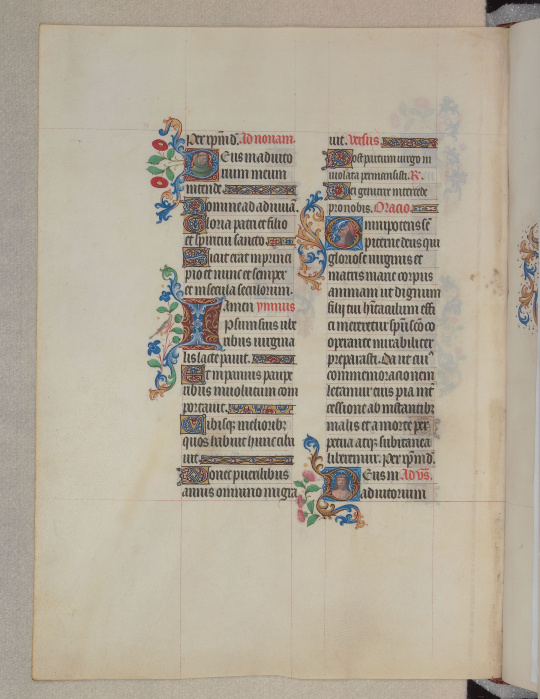 Per ipm d. Ad nonam.
Deus in adiuto
rium meum
intende.
Domine ad adiuua.
Gloria patri et filio
et spiritui sancto.
Sicut erat in princi
pio et nunc et semper
et in secula seculorum.
Amen ymnus
Ipsum suis ube
ribus uirgina
lis lacte pauit.
Et in pannis paupe
ribus inuolutum com
portauit.
Cibisq; melioribz
quos habuit hunc cibi
uit.
Donec puerilibus
annis omnino migra
uit. Versus
Post partum uirgo in
uiolata permansisti. R.
Dei genitrix intercede
pro nobis. Oracio
Omnipotens se
piterne deus qui
gloriose uirginis et
matris marie corpus
animam ut dignum
filij tui hitaculum effi
ci mereretur spu sco co
operante mirabiliter
preparasti. Da ut cui9
commemoracionem
letamur eius pia int
cessione ab instantibz
malis et a morte per
petua atq; subitanea
liberemur. Per ipm d.
Deus in Ad vs.
adiutorium